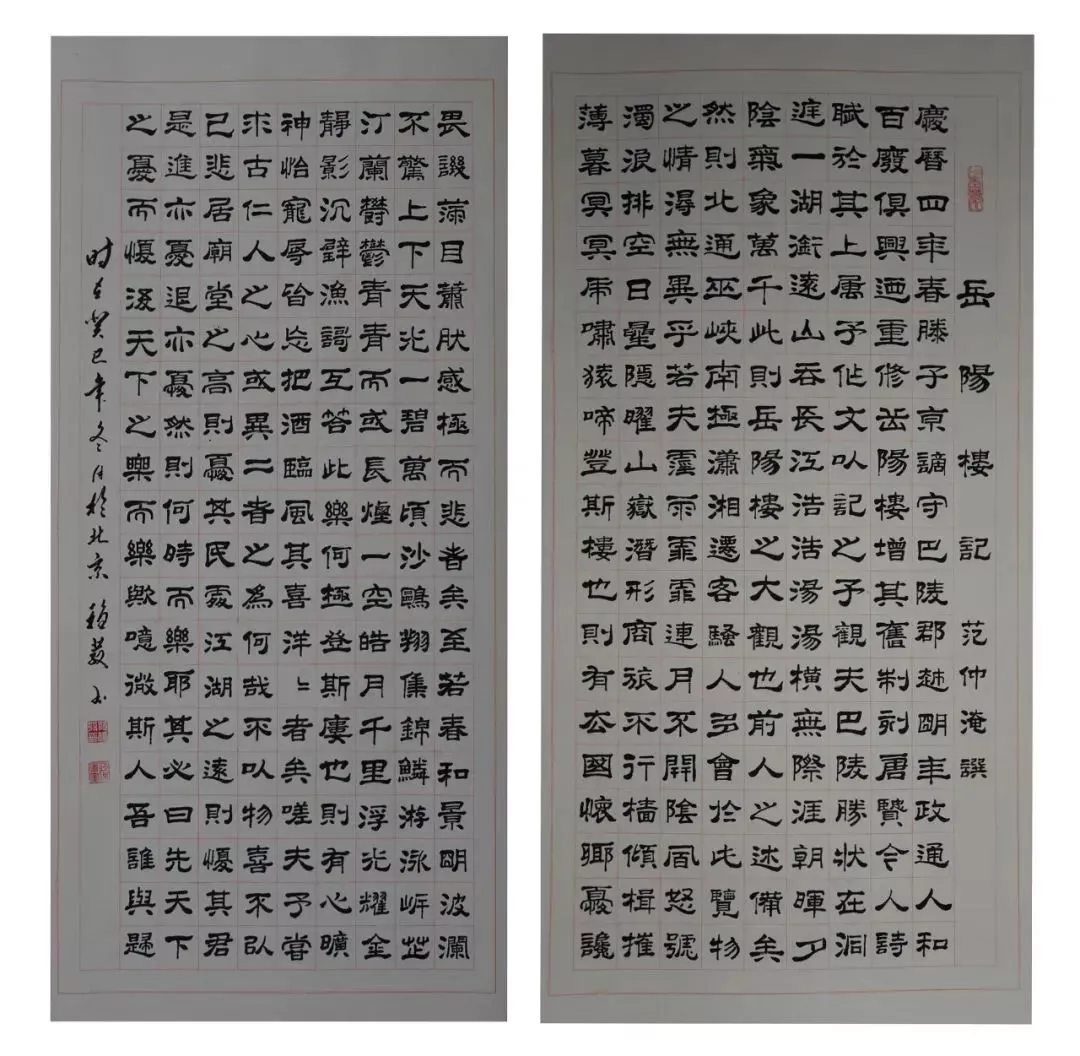 岳陽樓記 范仲淹譔
慶曆四年春滕子京謫守巴陵郡越明年政通人和
百廢俱興迺重修岳陽樓增其舊制刻唐賢今人詩
賦於其上属予作文以記之予觀夫巴陵勝状在洞
庭一湖銜遠山吞長江浩浩湯湯橫無際涯朝暉夕
陰氣象萬千此則岳陽樓之大觀也前人之述備矣
然則北通巫峽南極瀟湘遷客騷人多會於此覽物
之情得無異乎若夫霪雨霏霏連月不開陰風怒號
濁浪排空日星隱曜山嶽潛形商旅不行檣傾楫摧
薄暮冥冥虎嘯猿啼登斯樓也則有去國懷鄉憂讒
畏譏滿目蕭然感極而悲者矣至若春和景明波瀾
不驚上下天光一碧萬頃沙鷗翔集錦鱗游泳岸芷
汀蘭鬱鬱青青而或長煙一空皓月千里浮光耀金
靜影沉璧漁謌互答此樂何極登斯樓也則有心曠
神怡寵辱皆忘把酒臨風其喜洋〻者矣嗟夫予嘗
求古仁人之心或異二者之為何哉不以物喜不以
己悲居廟堂之高則憂其民處江湖之遠則憂其君
是進亦憂退亦憂然則何時而樂耶其必曰先天下
之憂而憂後天下之樂而樂歟噫微斯人吾誰與歸
时在癸巳年冬月於北京